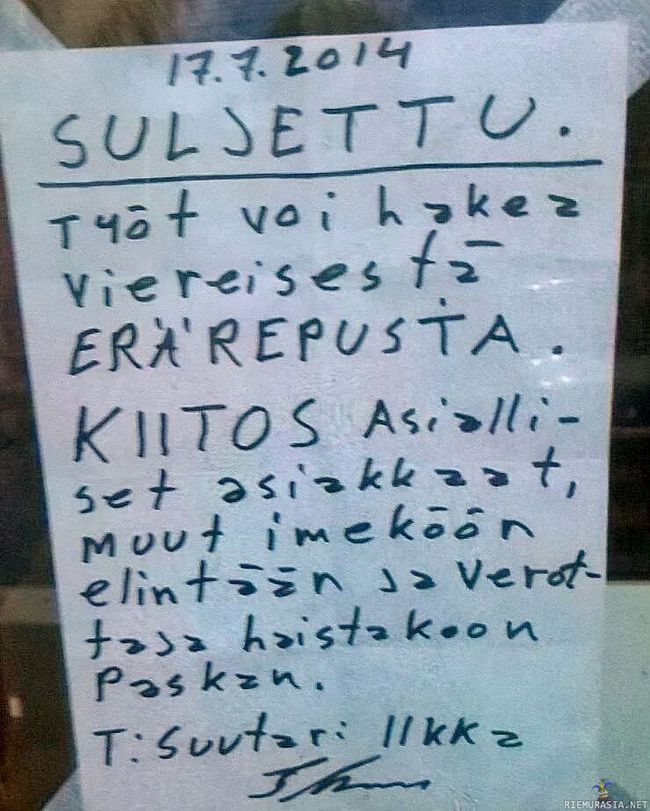 17.7.2014
SULJETTU.
Työt voi hakea
viereisestä
ERÄREPUSTA.
KIITOS Asialli-
set asiakkaat,
muut imekөөn
elintään ja verot-
taja haistakoon
Paskan.
T: Suutari Ilkka
RIEMURASIA.NET